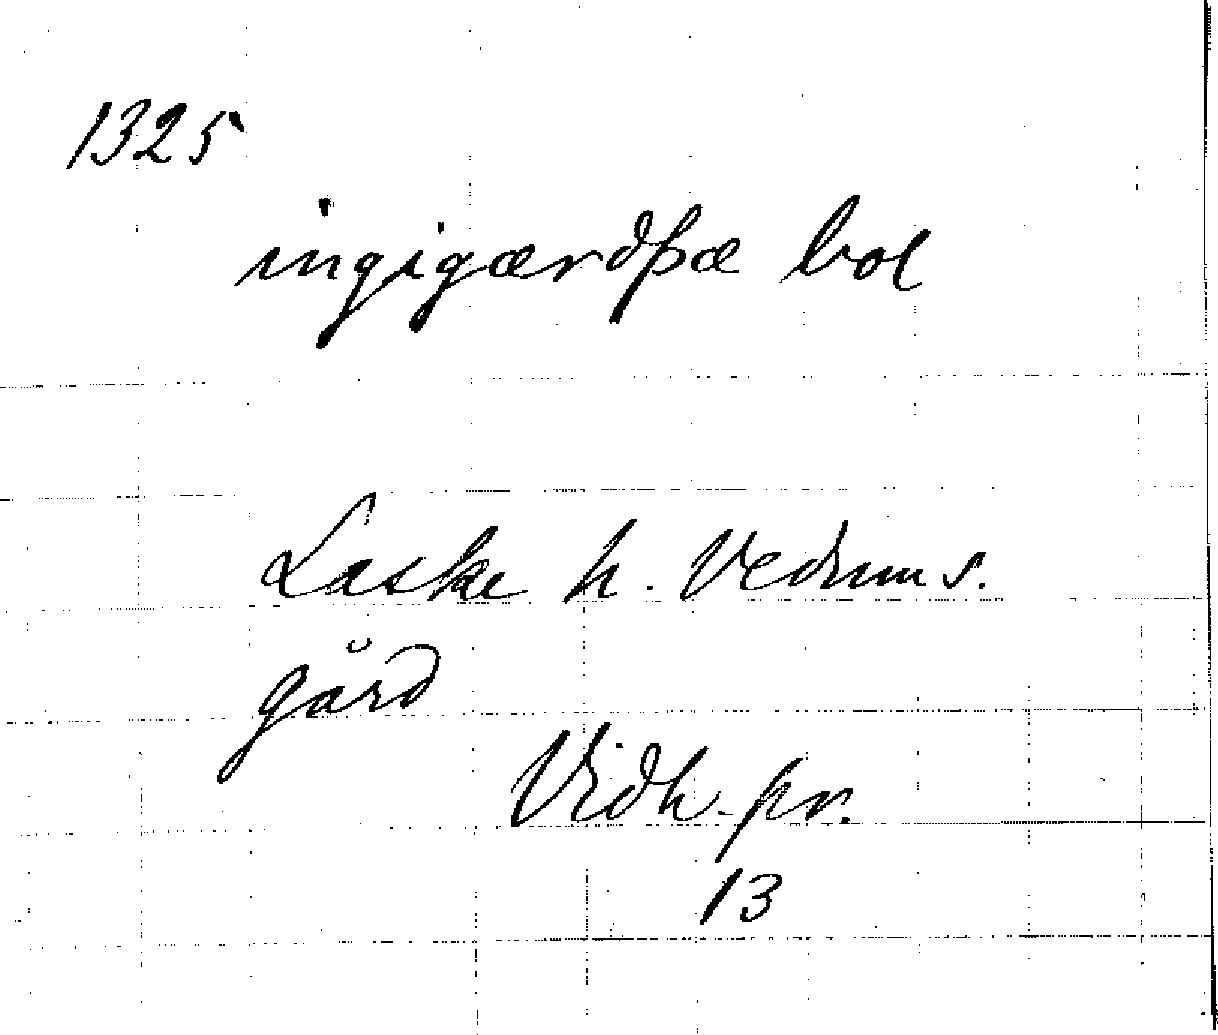 1325
ingigærdþæ bol
Laske h. Vedum s.
gård
Vidh. pr.
13